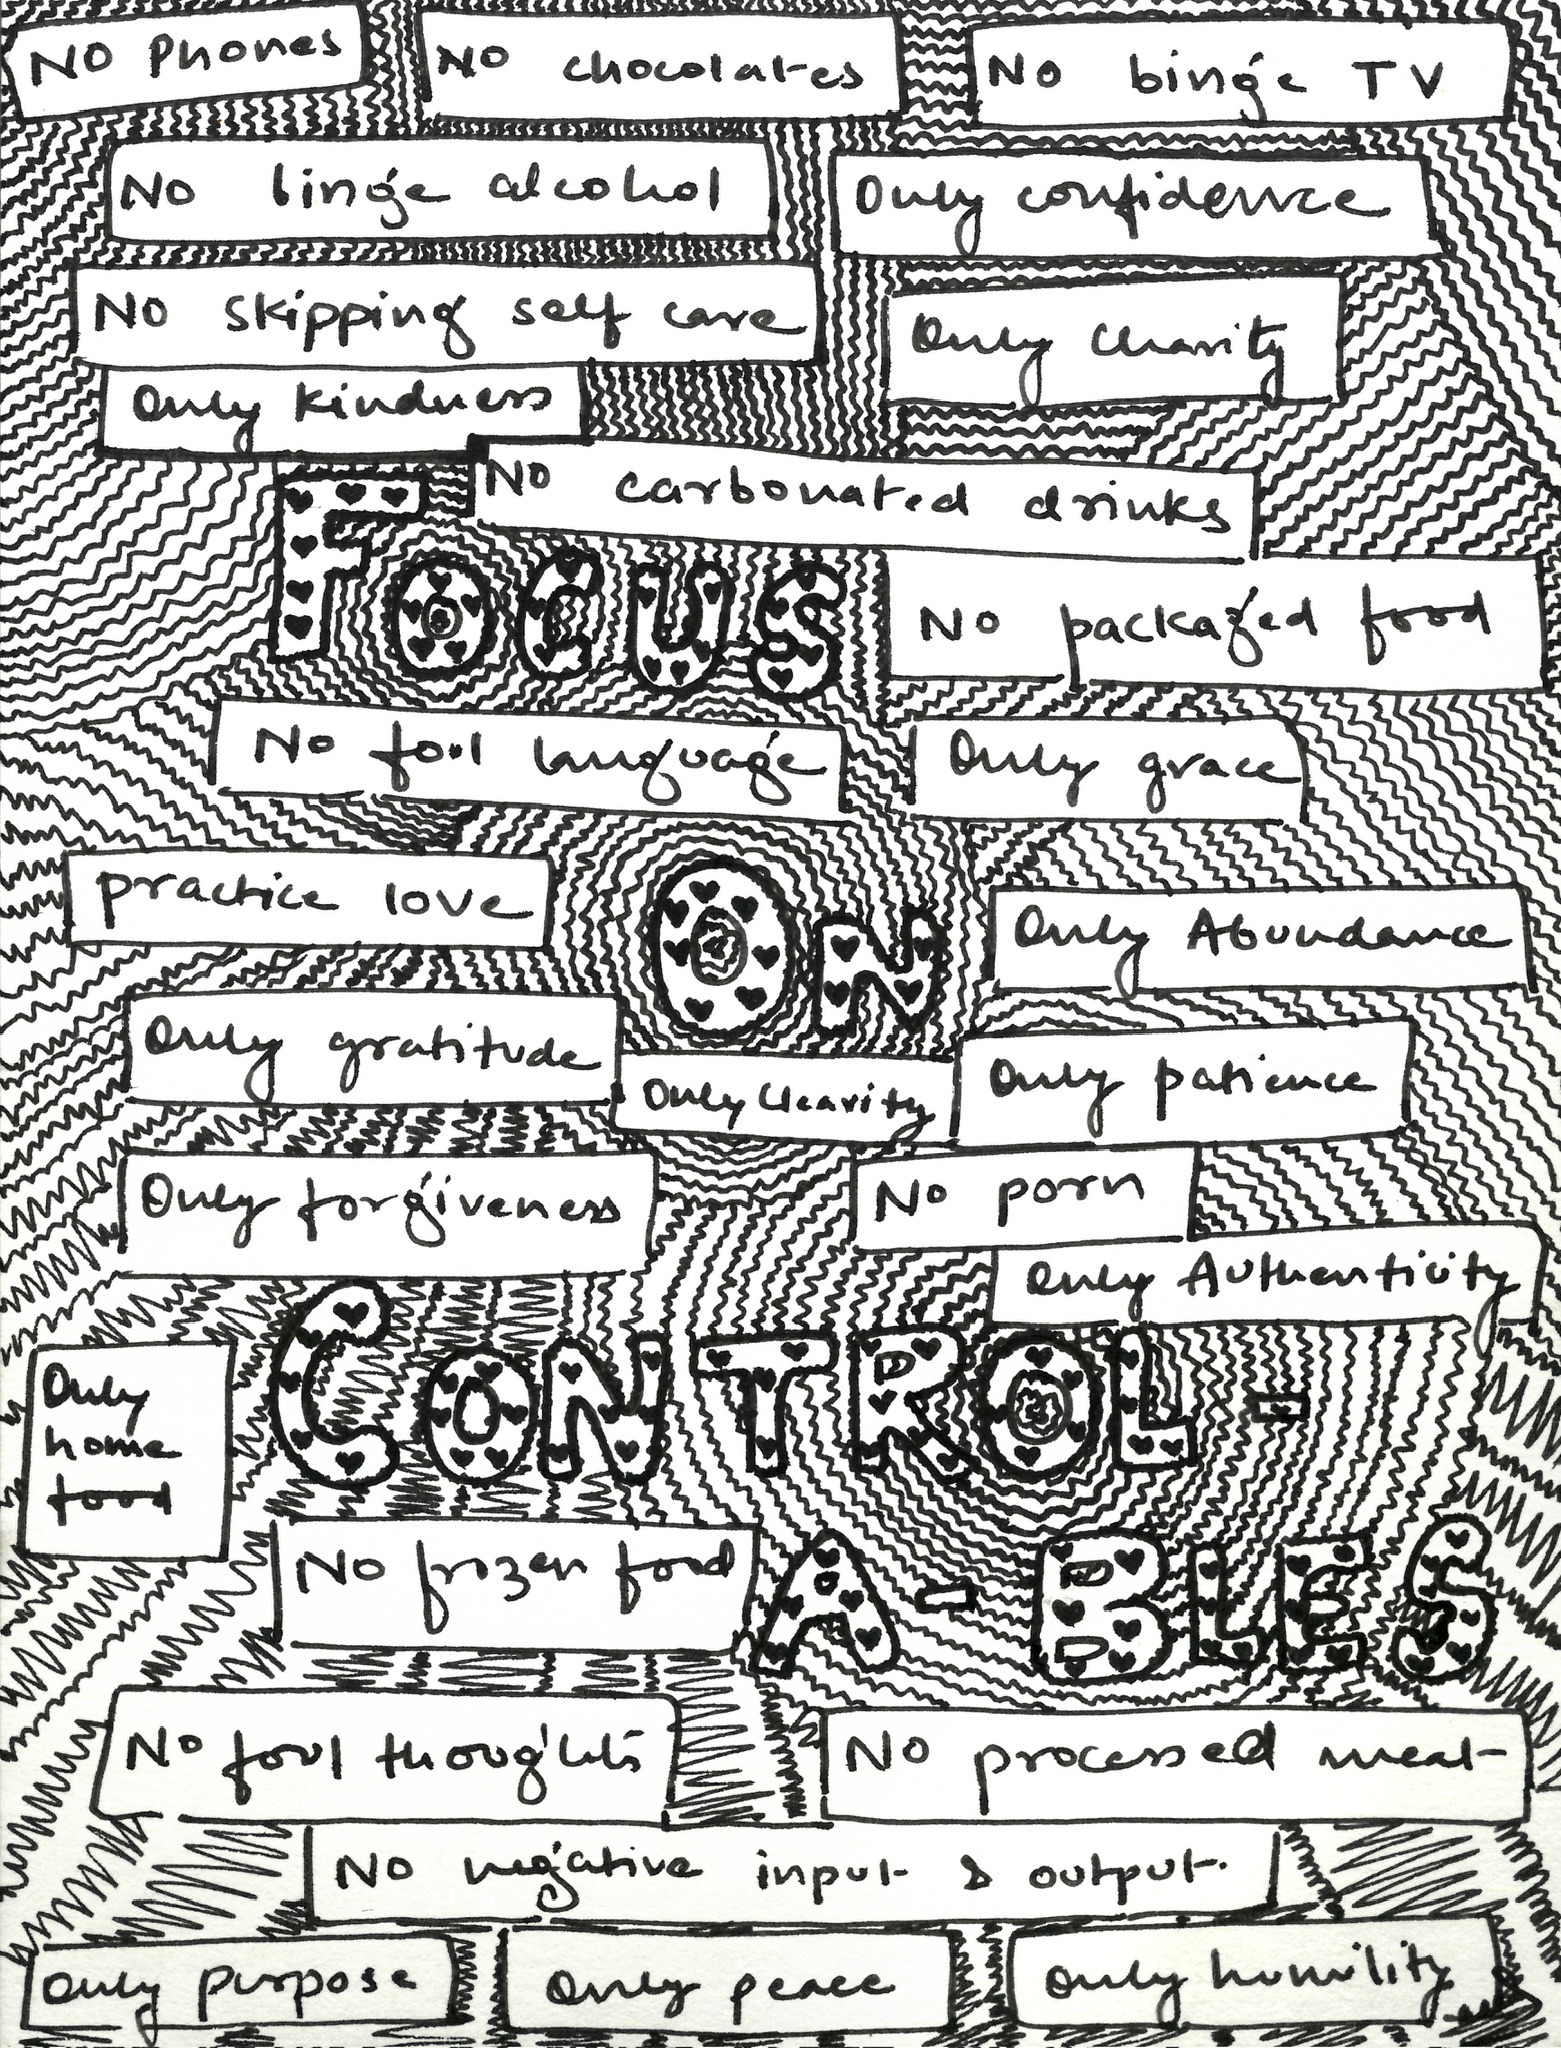 NO Phones
NO chocolates
No binge TV
NO binge alcohol
Only confidence
NO skipping self care
Only charity
Only kindness
NO carbonated drinks
FOCUS
No packaged food
No foul language
Only grace
practice love
ON
Only Abundance
Only gratitude
Only Clearity
Only patience
Only forgiveness
No porn
Only Authenticity
CONTROL-
Only
home
food
No frozen food
A-BLES
No foul thoughts
No processed meat
No negative input & output.
Only purpose
Only peace
Only humility